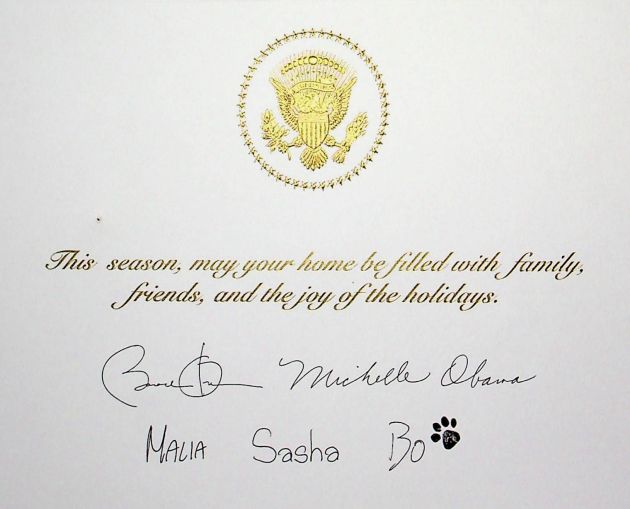 This season, may your home be filled with family,
friends, and the joy of the holidays.
Barack Obama Michelle Obama
MALIA Sasha Bo